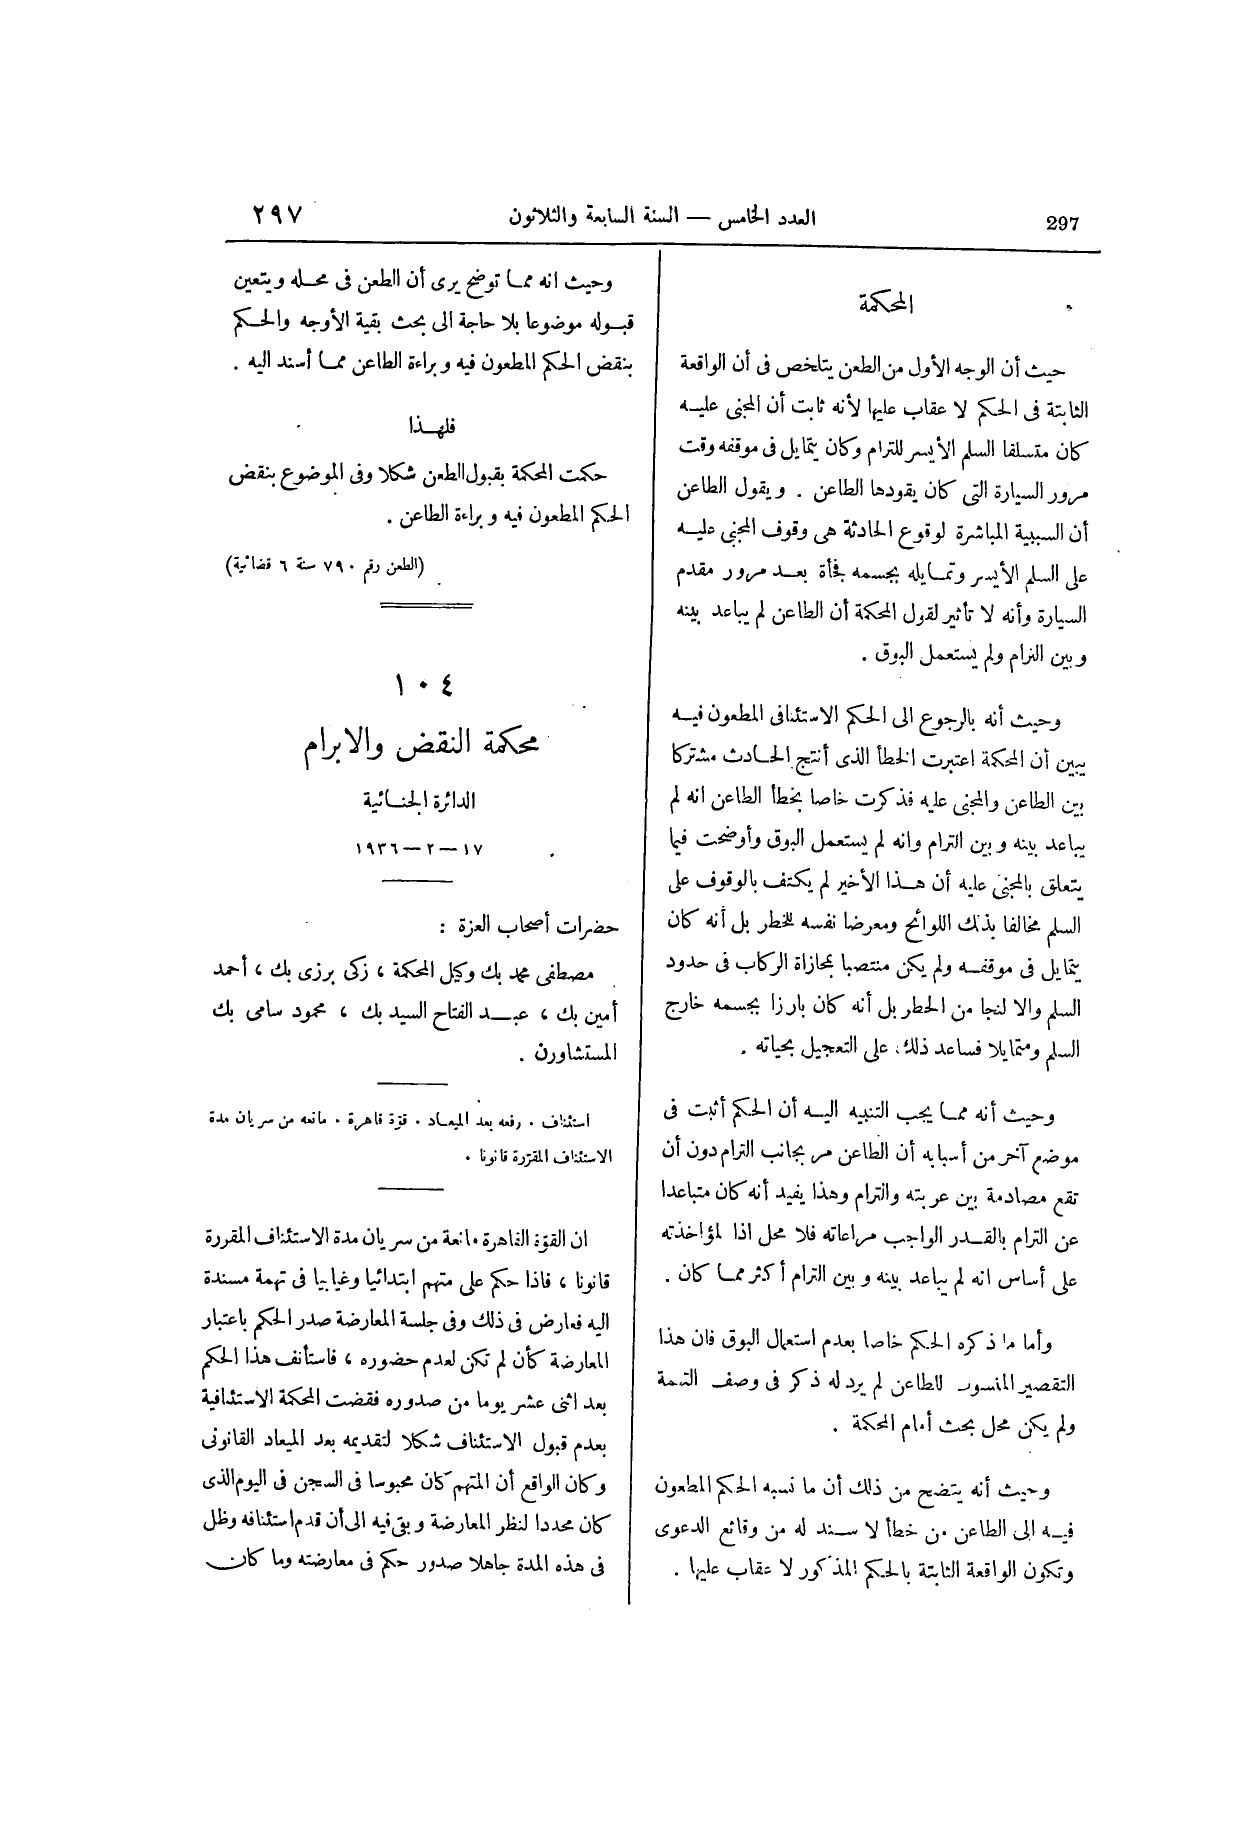 297
العدد الخامس — السنة السابعة والثلاثون
٢٩٧
المحكمة
حيث أن الوجه الأول من الطعن يتلخص فى أن الواقعة
الثابتة فى الحكم لا عقاب عليها لأنه ثابت أن المجنى عليه
كان متسلقا السلم الأيسر للترام وكان يتمايل فى موقفه وقت
مرور السيارة التى كان يقودها الطاعن . ويقول الطاعن
أن السببية المباشرة لوقوع الحادثة هى وقوف المجنى عليه
على السلم الأيسر وتمايله بجسمه فجأة بعد مرور مقدم
السيارة وأنه لا تأثير لقول المحكمة أن الطاعن لم يباعد بينه
وبين الترام ولم يستعمل البوق .
وحيث أنه بالرجوع الى الحكم الاستئنافى المطعون فيه
يبين أن المحكمة اعتبرت الخطأ الذى أنتج الحادث مشتركا
بين الطاعن والمجنى عليه فذكرت خاصا بخطأ الطاعن انه لم
يباعد بينه وبين الترام وانه لم يستعمل البوق وأوضحت فيما
يتعلق بالمجنى عليه أن هذا الأخير لم يكتف بالوقوف على
السلم مخالفا بذلك اللوائح ومعرضا نفسه للخطر بل أنه كان
يتمايل فى موقفه ولم يكن منتصبا بمحازاة الركاب فى حدود
السلم والا لنجا من الخطر بل أنه كان بارزا بجسمه خارج
السلم ومتمايلا فساعد ذلك على التعجيل بحياته .
وحيث أنه مما يجب التنبيه اليه أن الحكم أثبت فى
موضع آخر من أسبابه أن الطاعن مر بجانب الترام دون أن
تقع مصادمة بين عربته والترام وهذا يفيد أنه كان متباعدا
عن الترام بالقدر الواجب مراعاته فلا محل اذا لمؤاخذته
على أساس انه لم يباعد بينه وبين الترام أكثر مما كان .
وأما ما ذكره الحكم خاصا بعدم استعمال البوق فان هذا
التقصير المنسوب للطاعن لم يرد له ذكر فى وصف التهمة
ولم يكن محل بحث أمام المحكمة .
وحيث أنه يتضح من ذلك أن ما نسبه الحكم المطعون
فيه الى الطاعن من خطأ لا سند له من وقائع الدعوى
وتكون الواقعة الثابتة بالحكم المذكور لا عقاب عليها .
وحيث انه مما توضح يرى أن الطعن فى محله ويتعين
قبوله موضوعا بلا حاجة الى بحث بقية الأوجه والحكم
بنقض الحكم المطعون فيه وبراءة الطاعن مما أسند اليه .
فلهذا
حكمت المحكمة بقبول الطعن شكلا وفى الموضوع بنقض
الحكم المطعون فيه وبراءة الطاعن .
(الطعن رقم ٧٩٠ سنة ٦ قضائية)
١٠٤
محكمة النقض والابرام
الدائرة الجنائية
١٧ — ٢ — ١٩٣٦
حضرات أصحاب العزة :
مصطفى محمد بك وكيل المحكمة ، زكى برزى بك ، أحمد
أمين بك ، عبد الفتاح السيد بك ، محمود سامى بك
المستشاورن .
استئناف . رفعه بعد الميعاد . قوة قاهرة . مانعه من سريان مدة
الاستئناف المقررة قانونا .
ان القوة القاهرة مانعة من سريان مدة الاستئناف المقررة
قانونا ، فاذا حكم على متهم ابتدائيا وغيابيا فى تهمة مسندة
اليه فعارض فى ذلك وفى جلسة المعارضة صدر الحكم باعتبار
المعارضة كأن لم تكن لعدم حضوره ، فاستأنف هذا الحكم
بعد اثنى عشر يوما من صدوره فقضت المحكمة الاستئنافية
بعدم قبول الاستئناف شكلا لتقديمه بعد الميعاد القانونى
وكان الواقع أن المتهم كان محبوسا فى السجن فى اليوم الذى
كان محددا لنظر المعارضة وبقى فيه الى أن قدم استئنافه وظل
فى هذه المدة جاهلا صدور حكم فى معارضته وما كان